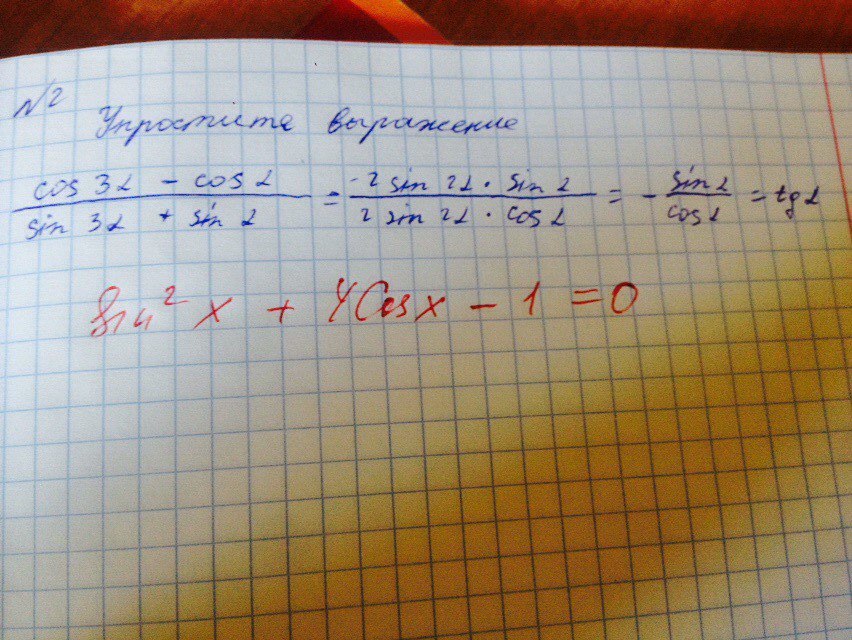 №2
Упростите выражение
(cos 3α - cos α)/(sin 3α + sin α) = (-2 sin 2α · sin α)/(2 sin 2α · cos α) = - (sin α)/(cos α) = tg α
Sin² x + 4Cos x - 1 = 0